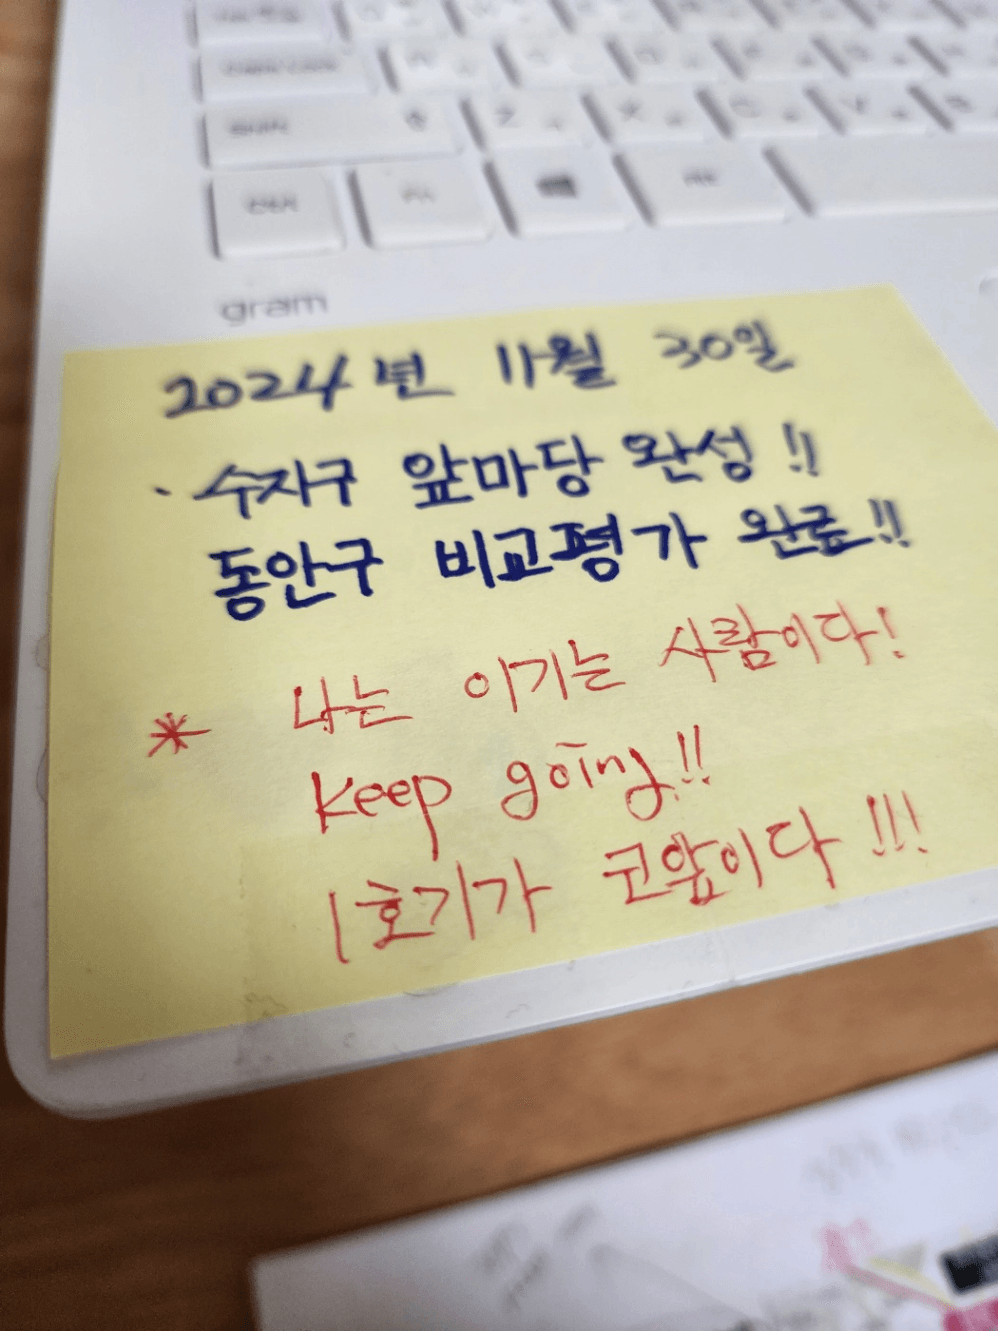 Z
X
C
V
gram
2024년 11월 30일
· 수지구 앞마당 완성!!
동안구 비교평가 완료!!
* 나는 이기는 사람이다!
keep going!!
1호기가 코앞이다!!!